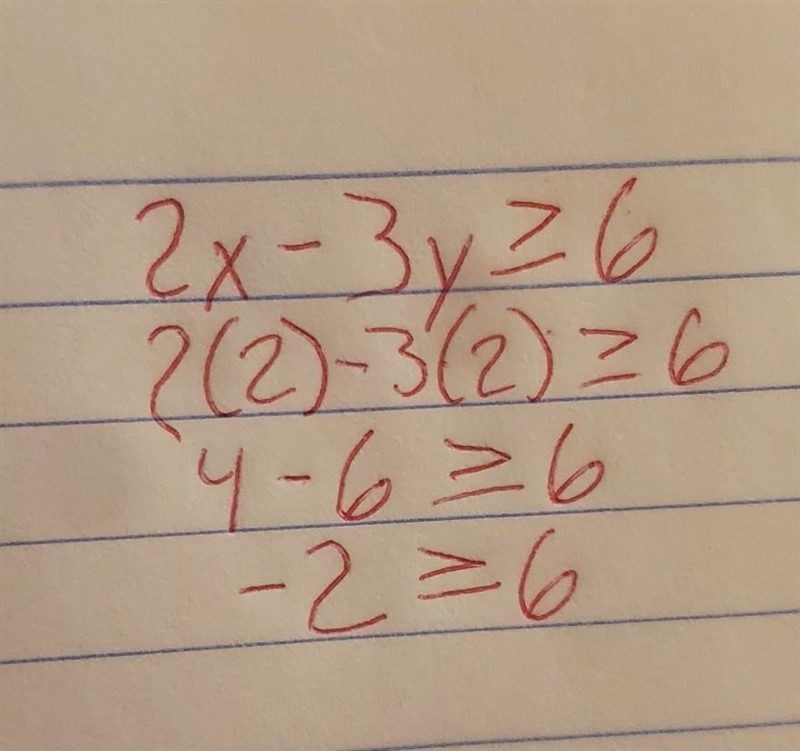 2x - 3y ≥ 6
2(2) - 3(2) ≥ 6
4 - 6 ≥ 6
-2 ≥ 6